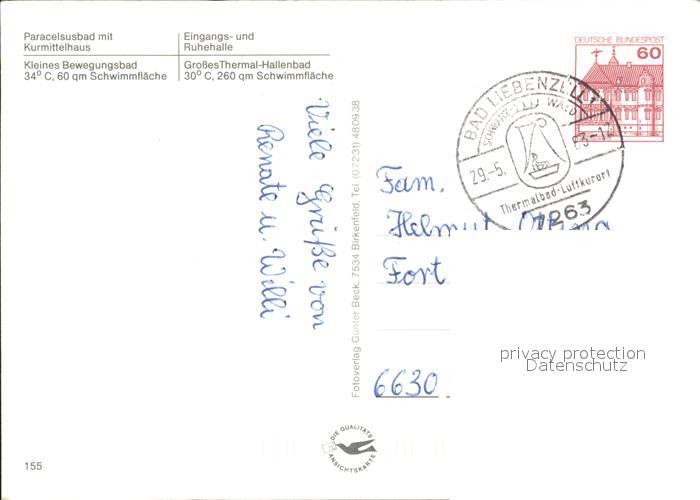 Paracelsusbad mit
Kurmittelhaus
Eingangs- und
Ruhehalle
Kleines Bewegungsbad
34° C, 60 qm Schwimmfläche
GroßesThermal-Hallenbad
30° C, 260 qm Schwimmfläche
DEUTSCHE BUNDESPOST
60
BAD LIEBENZELL
SCHWARZWALD
29.-5.
83-12
Thermalbad-Luftkurort
7263
Viele Grüße von
Renate u. Willi
Fotoverlag Gunter Beck, 7534 Birkenfeld, Tel. (07231) 480938
Fam.
Helmut
Fort
6630
privacy protection
Datenschutz
DIE QUALITÄTS
ANSICHTSKARTE
155